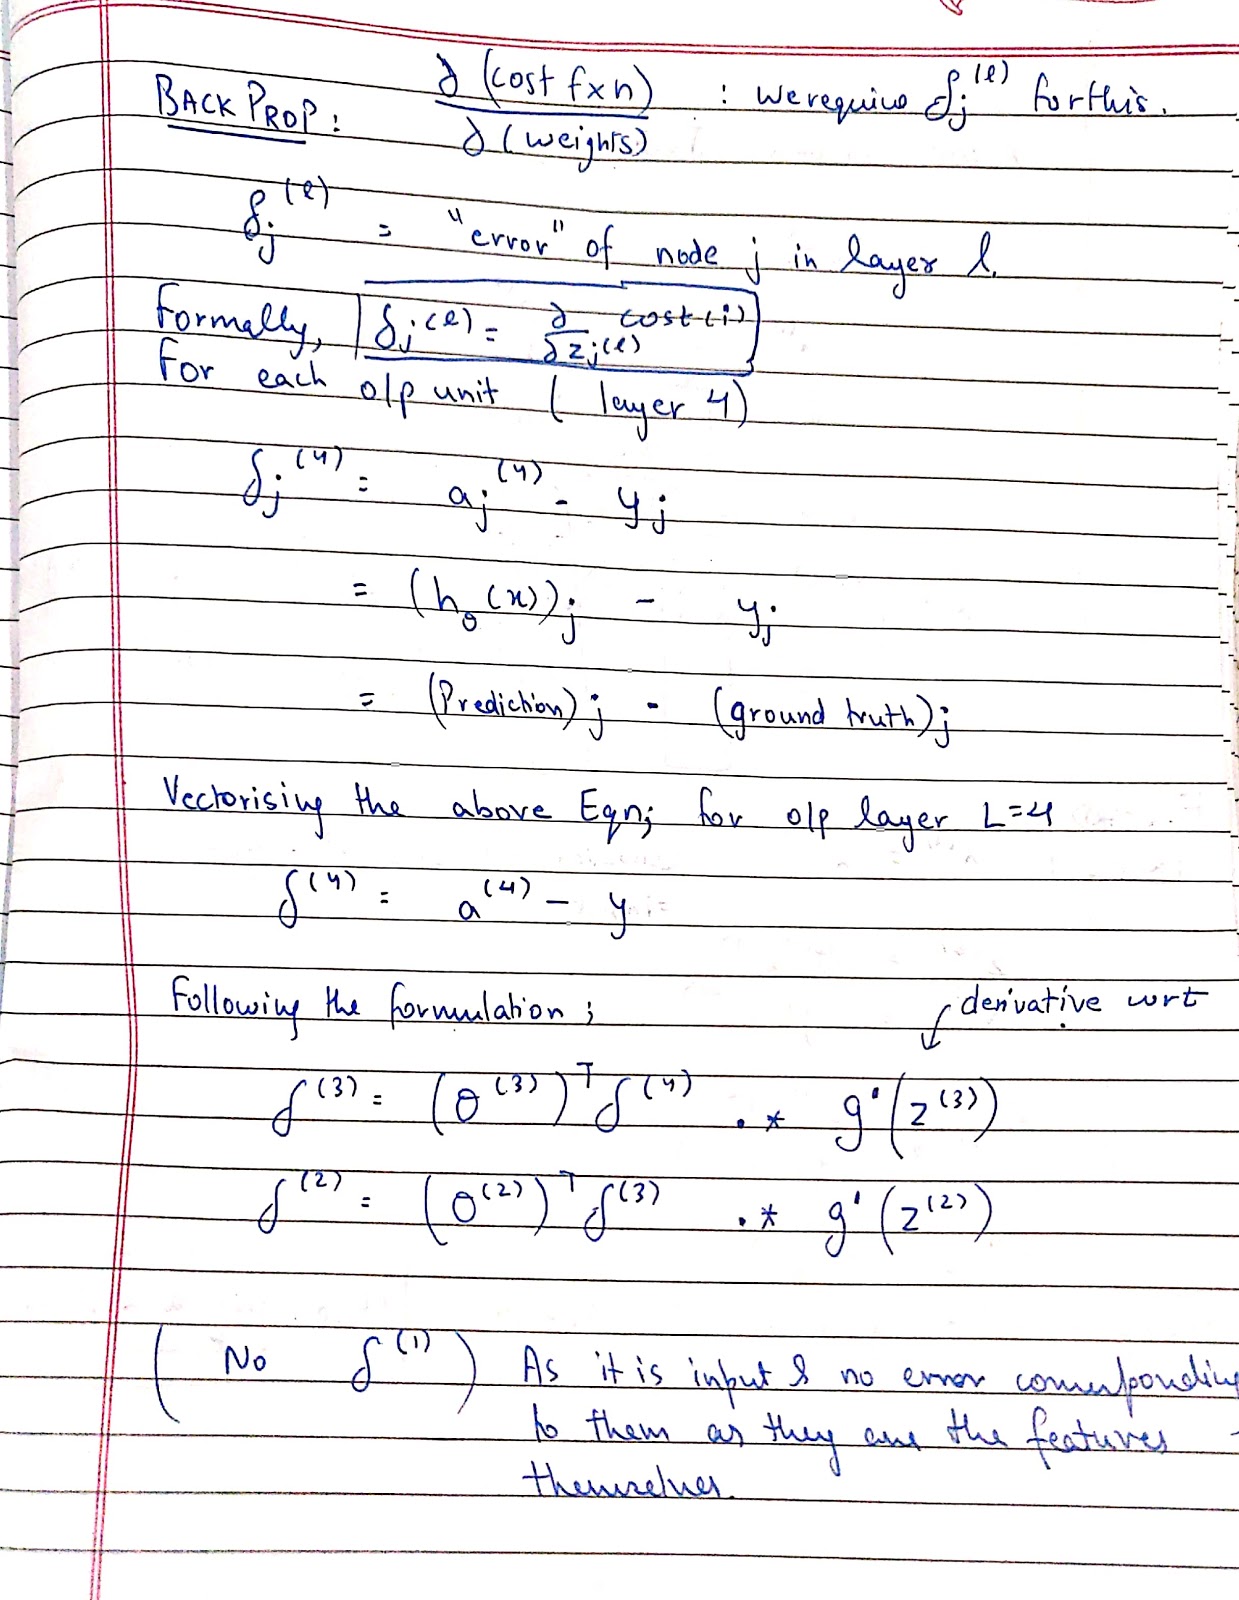 BACK PROP : ∂ (cost fxn) / ∂ (weights) : we require δj(l) for this.
δj(l) = "error" of node j in layer l.
Formally, δj(l) = ∂/∂zj(l) cost(i)
For each o/p unit ( layer 4)
δj(4) = aj(4) - yj
= (hθ(x))j - yj
= (Prediction)j - (ground truth)j
Vectorising the above Eqn; for o/p layer L=4
δ(4) = a(4) - y
Following the formulation ;
derivative wrt
δ(3) = (θ(3))T δ(4) .* g'(z(3))
δ(2) = (θ(2))T δ(3) .* g'(z(2))
( No δ(1) ) As it is input & no error corresponding
to them as they are the features
themselves.